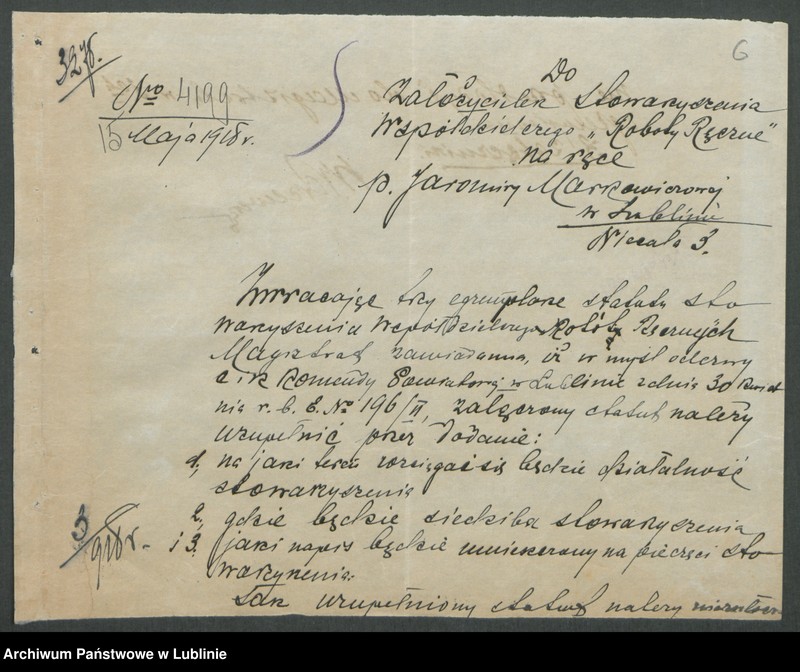 6
327/8.
No 4199
15 Maja 1918 r.
Do
Założycielek Stowarzyszenia
Współdzielczego „Roboty Ręczne”
na ręce
p. Jaromiry Markowiczowej
w Lublinie
Niecała 3.
Zwracając trzy egzemplarze statutu sto
warzyszenia Współdzielczego Robót Ręcznych
Magistrat zawiadamia, iż w myśl odezwy
c i k Komendy Powiatowej w Lublinie z dnia 30 kwiet
nia r. b. E. No 196/II, załączony statut należy
uzupełnić przez dodanie:
1, na jaki teren rozciągać się będzie działalność
stowarzyszenia
2, gdzie będzie siedziba stowarzyszenia
i 3. jaki napis będzie umieszczony na pieczęci sto
warzyszenia.
Tak uzupełniony statut należy
5/918 r.
Archiwum Państwowe w Lublinie